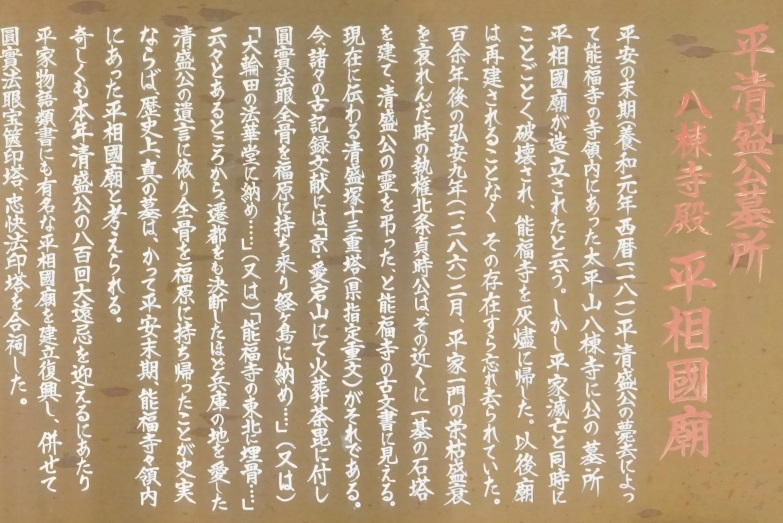 平清盛公墓所
八棟寺殿 平相國廟
平安の末期(養和元年西暦一一八一)平清盛公の薨去によっ
て能福寺の寺領内にあった太平山八棟寺に公の墓所
平相國廟が造立されたと云う。しかし平家滅亡と同時に
ことごとく破壊され、能福寺を灰燼に帰した。以後廟
は再建されることなく その存在すら忘れ去られていた。
百余年後の弘安九年(一二八六)二月、平家一門の栄枯盛衰
を哀れんだ時の執権北条貞時公は、その近くに一基の石塔
を建て、清盛公の霊を弔った、と能福寺の古文書に見える。
現在に伝わる清盛塚十三重塔(県指定重文)がそれである。
今、諸々の古記録文献には「京・愛宕山にて火葬荼毘に付し
圓實法眼全骨を福原に持ち来り経ヶ島に納め…」(又は)
「大輪田の法華堂に納め…」(又は)「能福寺の東北に埋骨…」
云々とあるところから遷都をも決断したほど兵庫の地を愛した
清盛公の遺言に依り全骨を福原に持ち帰ったことが史実
ならば、歴史上、真の墓は、かって平安末期、能福寺々領内
にあった平相國廟と考えられる。
奇しくも本年清盛公の八百回大遠忌を迎えるにあたり
平家物語類書にも有名な平相國廟を建立復興し、併せて
圓實法眼宝篋印塔、忠快法印塔を合祠した。